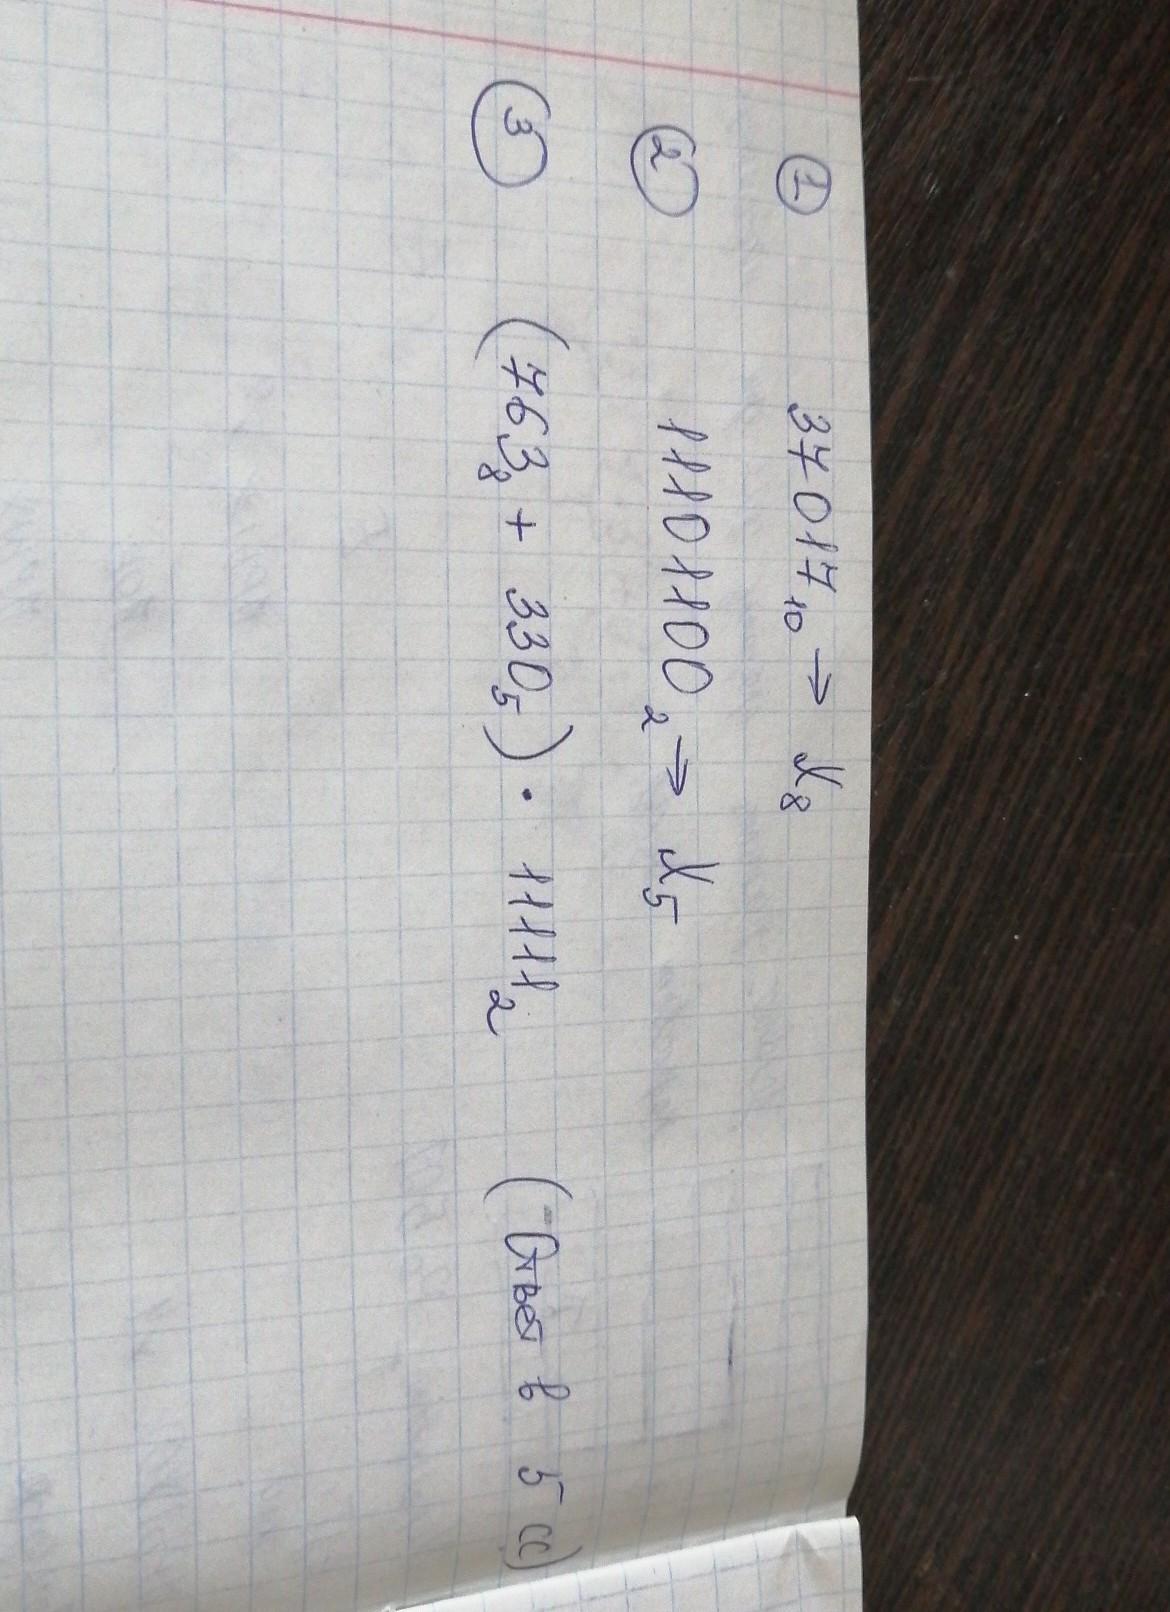 ① 37017₁₀ → X₈
② 11101100₂ → X₅
③ (763₈ + 330₅) · 1111₂ (Ответ в 5 сс)